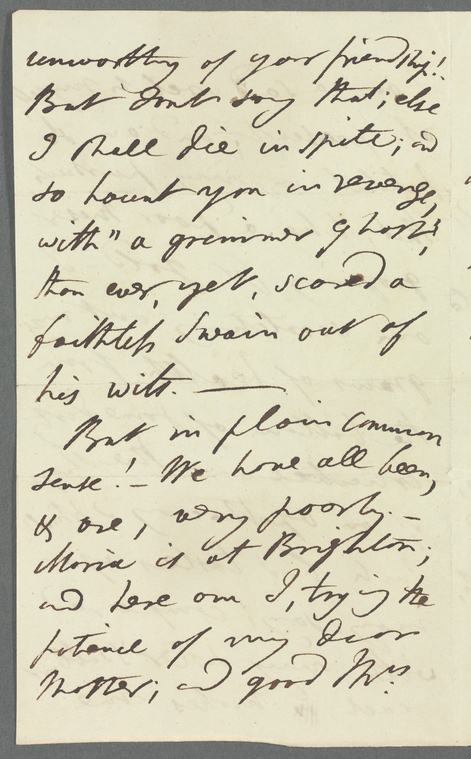 unworthy of your friendship!
But dont say that; else
I shall die in spite; and
so haunt you in revenge,
with" a grimmer ghost;
than ever, yet, scared a
faithless Swain out of
his wits. —
But in plain common
sense! – We have all been,
& are, very poorly. –
Maria is at Brighton;
and here am I, trying the
patience of my dear
Mother; and good Mrs.